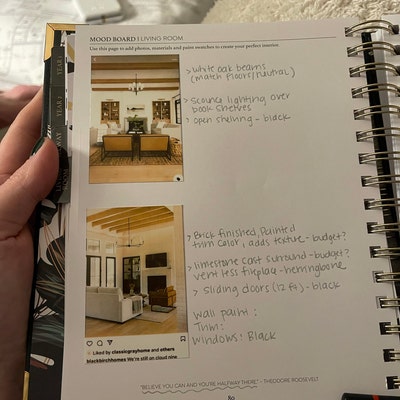 MOOD BOARD | LIVING ROOM
Use this page to add photos, materials and paint swatches to create your perfect interior.
YEAR 1
YEAR 2
> white oak beams
(match floors/neutral)
> Scounce lighting over
book shelves
> open shelving - black
> Brick finished, Painted
trim color, adds texture - budget?
> limestone cast surround - budget?
vent less fireplace - herringbone
> Sliding doors (12 ft) - black
Wall paint:
Trim:
Windows: Black
Liked by classicgrayhome and others
blackbirchhomes We're still on cloud nine
"BELIEVE YOU CAN AND YOU'RE HALFWAY THERE." - THEODORE ROOSEVELT